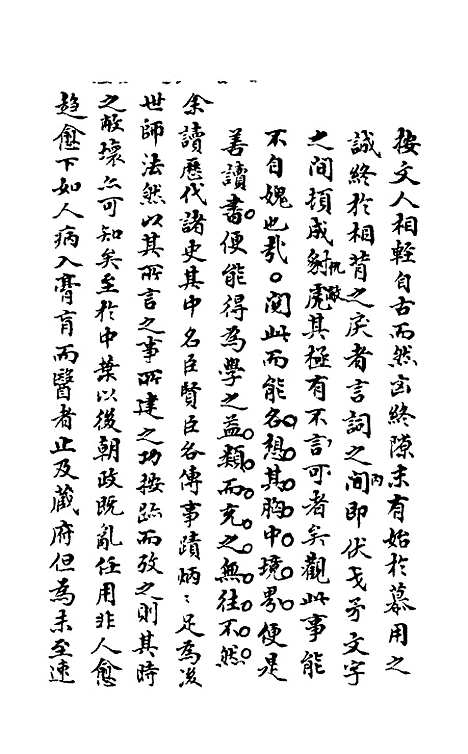 按文人相輕自古而然凶終隙末有始於慕用之
誠終於相背之戾者言詞之間即伏戈矛文字
之間頓成豺虎其極有不可言者矣觀此事能
不自媿也哉。閱此而能名想其胸中境界便是
善讀書便能得為學之益類而充之無往不然
余讀歷代諸史其中名臣賢臣各傳事蹟炳〻足為後
世師法然以其所言之事所建之功按跡而攷之則其時
之敝壞亦可知矣至於中葉以後朝政既亂任用非人愈
趨愈下如人病入膏肓而醫者止及藏府但為未至速